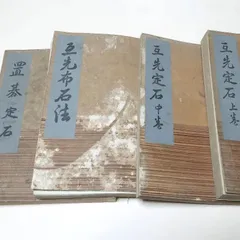 置碁定石
互先布石法
互先定石中巻
互先定石上巻